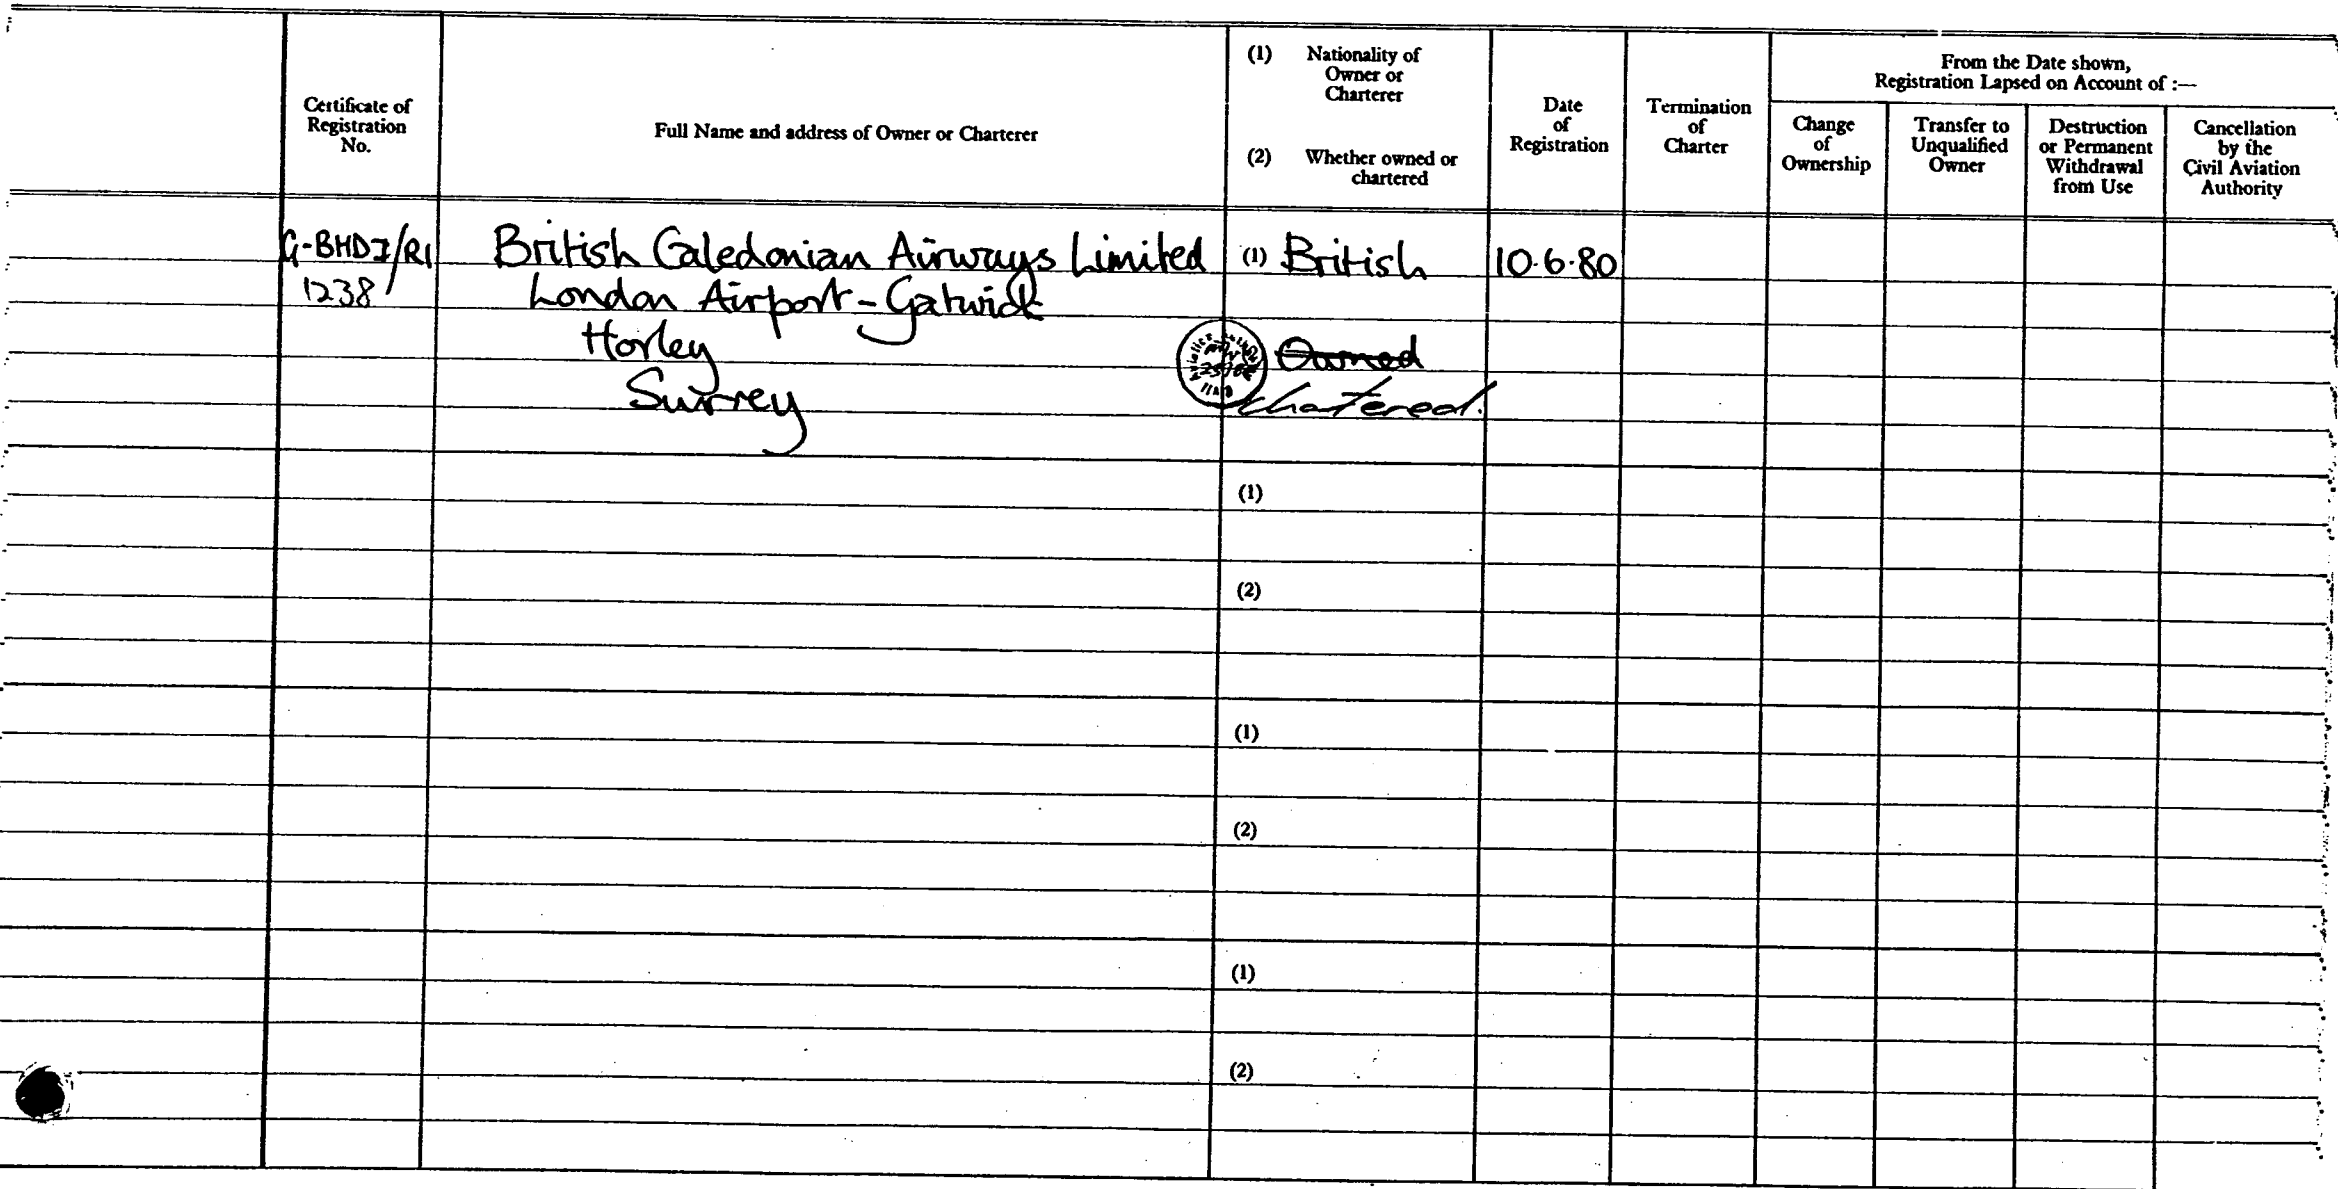 Certificate of
Registration
No.
Full Name and address of Owner or Charterer
(1) Nationality of
Owner or
Charterer
(2) Whether owned or
chartered
Date
of
Registration
Termination
of
Charter
From the Date shown,
Registration Lapsed on Account of :—
Change
of
Ownership
Transfer to
Unqualified
Owner
Destruction
or Permanent
Withdrawal
from Use
Cancellation
by the
Civil Aviation
Authority
G-BHDI/R1
1238
British Caledonian Airways Limited
London Airport - Gatwick
Horley
Surrey
(1) British
10.6.80
Owned
Chartered.
(1)
(2)
(1)
(2)
(1)
(2)